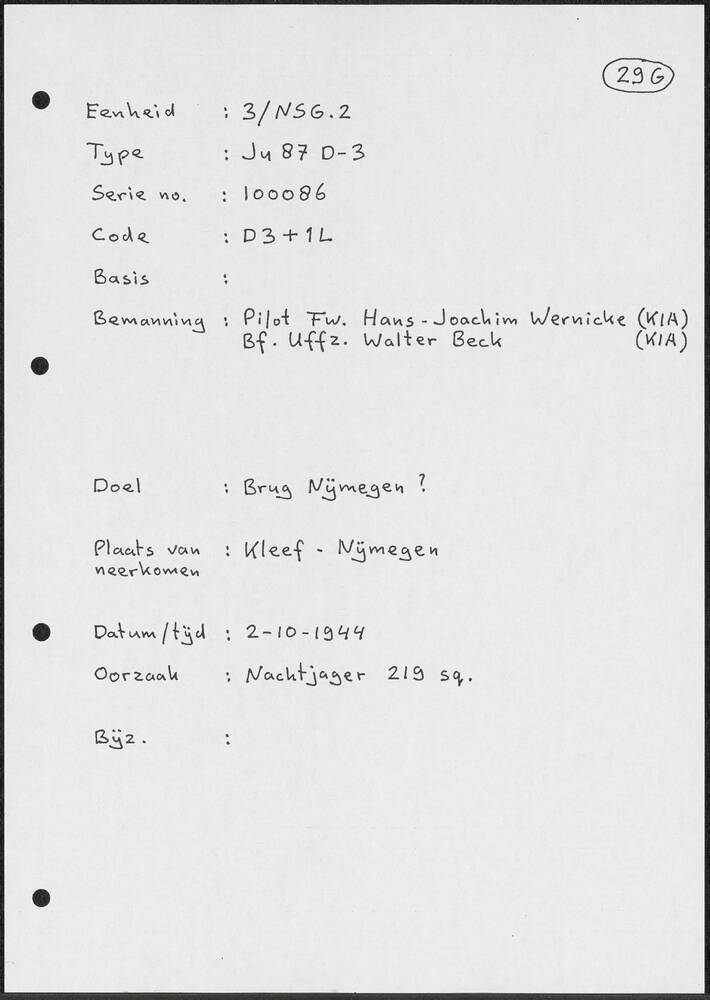 29G
Eenheid : 3/NSG.2
Type : Ju 87 D-3
Serie no. : 100086
Code : D3+1L
Basis :
Bemanning : Pilot Fw. Hans-Joachim Wernicke (KIA)
Bf. Uffz. Walter Beck (KIA)
Doel : Brug Nijmegen ?
Plaats van : Kleef - Nijmegen
neerkomen
Datum/tijd : 2-10-1944
Oorzaak : Nachtjager 219 sq.
Bijz. :